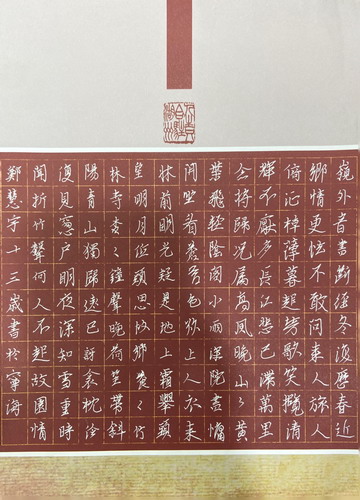 嶺外音書斷經冬復歷春近
鄉情更怯不敢問來人旅人
倚征棹薄暮起勞歌笑攬清
輝不厭多長江悲已滯萬里
念將歸況屬高風晚山々黃
葉飛輕陰閣小雨深院晝慵
開坐看蒼苔色欲上人衣來
床前明光疑是地上霜舉頭
望明月低頭思故鄉蒼々竹
林寺杳々鐘聲晚荷笠帶斜
陽青山獨歸遠已訝衾枕冷
復見窗戶明夜深知雪重時
聞折竹聲何人不起故園情
鄭慧宇十三歲書於寧海